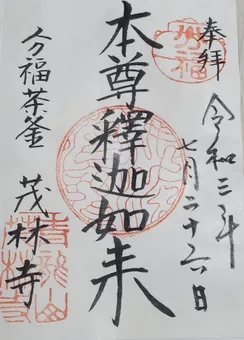 奉拝
令和三年
七月二十六日
本尊釋迦如来
分福茶釜
茂林寺
分福